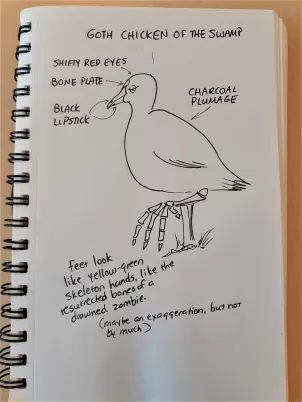 GOTH CHICKEN OF THE SWAMP
SHIFTY RED EYES
BONE PLATE
BLACK
LIPSTICK
CHARCOAL
PLUMAGE
feet look
like yellow-green
skeleton hands, like the
resurrected bones of a
drowned zombie.
(maybe an exaggeration, but not
by much)